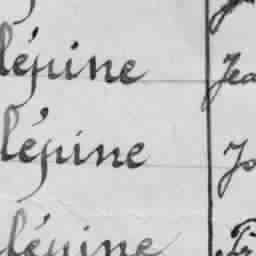 lépine Jea
lépine Jo
lépine